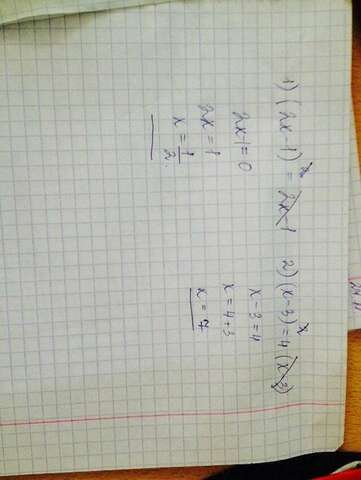 1) (2x-1)² = 2x-1
2x-1=0
2x=1
x=1/2.
2) (x-3)²=4(x-3)
x-3=4
x=4+3
x=7